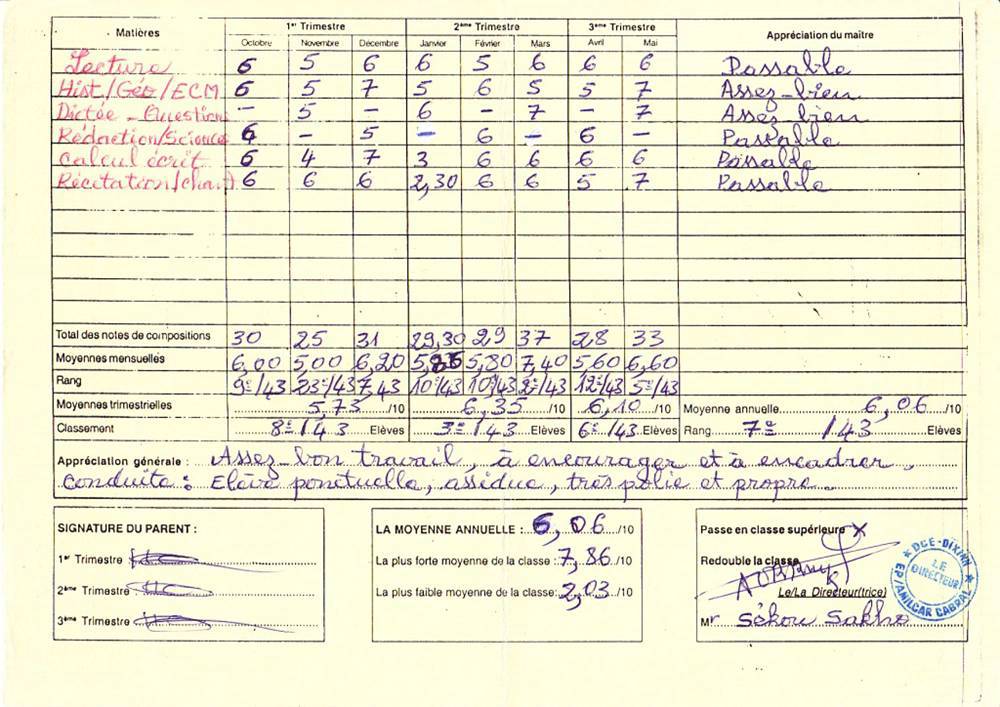 Matières 1er Trimestre 2ème Trimestre 3ème Trimestre Appréciation du maître
Octobre Novembre Décembre Janvier Février Mars Avril Mai
Lecture 6 5 6 6 5 6 6 6 Passable
Hist/Géo/ECM 6 5 7 5 6 5 5 7 Assez-bien
Dictée - Questions - 5 - 6 - 7 - 7 Assez-bien
Rédaction/Sciences 6 - 5 - 6 - 6 - Passable
Calcul écrit 6 4 7 3 6 6 6 6 Passable
Récitation/chant 6 6 6 2,30 6 6 5 7 Passable
Total des notes de compositions 30 25 31 29,30 29 37 28 33
Moyennes mensuelles 6,00 5,00 6,20 5,86 5,80 7,40 5,60 6,60
Rang 9e/43 23e/43 7/43 10e/43 10e/43 2e/43 12e/43 5e/43
Moyennes trimestrielles 5,73 /10 6,35 /10 6,10 /10 Moyenne annuelle 6,06 /10
Classement 8e/43 Elèves 3e/43 Elèves 6e/43 Elèves Rang 7e /43 Elèves
Appréciation générale : Assez-bon travail, à encourager et à encadrer.
Conduite : Elève ponctuelle, assidue, très polie et propre.
SIGNATURE DU PARENT :
1er Trimestre
2ème Trimestre
3ème Trimestre
LA MOYENNE ANNUELLE : 6,06 /10
La plus forte moyenne de la classe : 7,86 /10
La plus faible moyenne de la classe: 2,03 /10
Passe en classe supérieure X
Redouble la classe
Le/La Directeur(trice)
Mr Sékou Sakho
DCE-DIXINN
LE DIRECTEUR
EP/AMILCAR CABRAL